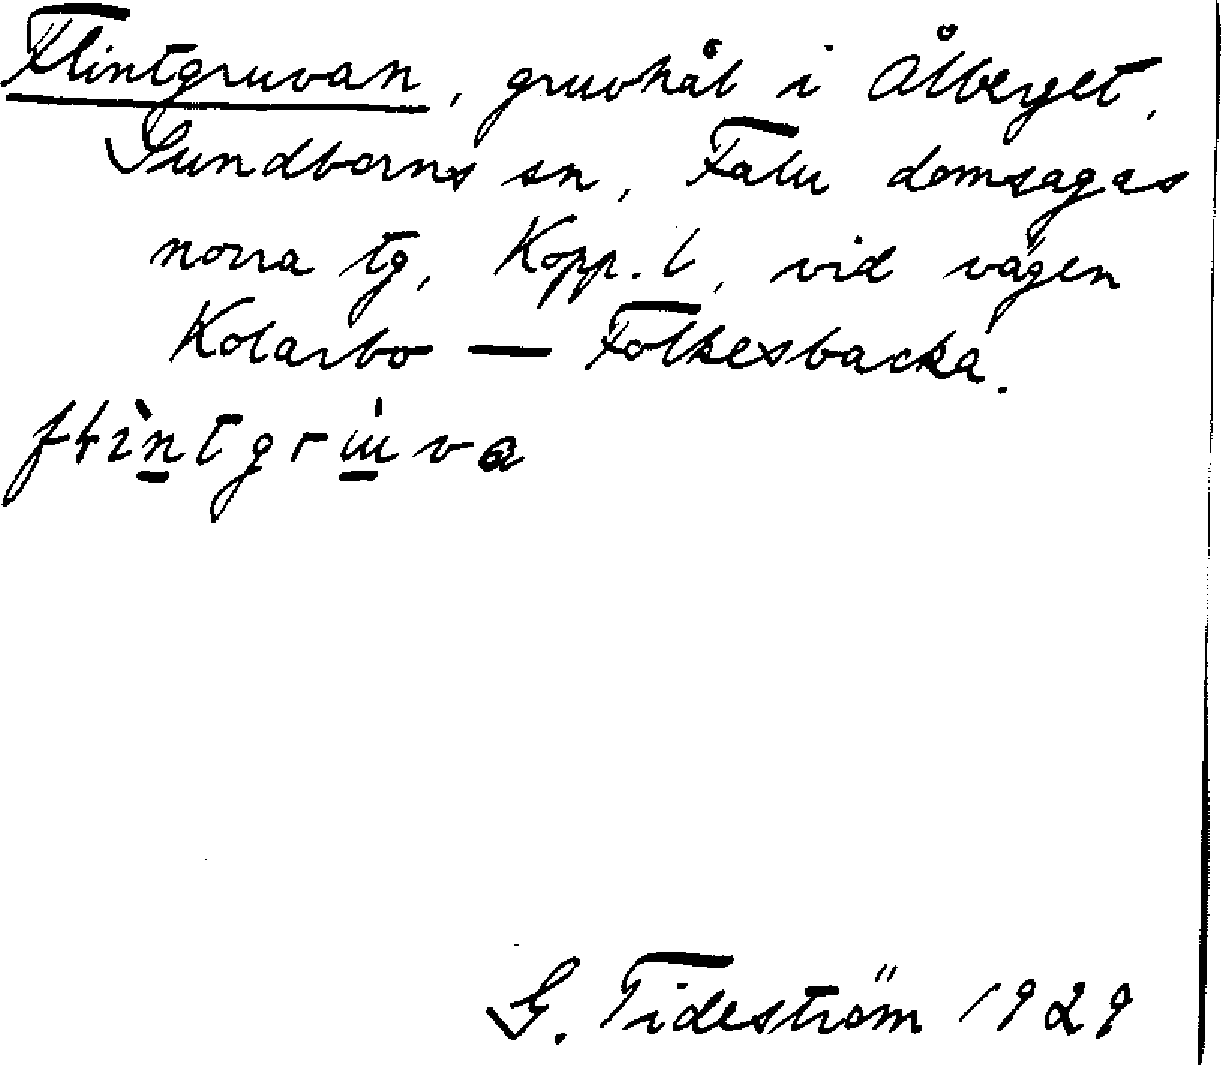 Flintgruvan, gruvhål i Ålberget,
Sundborns sn, Falu domsagas
norra tg, Kopp. l, vid vägen
Kolarbo — Folkesbacka.
flìntgrùva
G. Tideström 1929